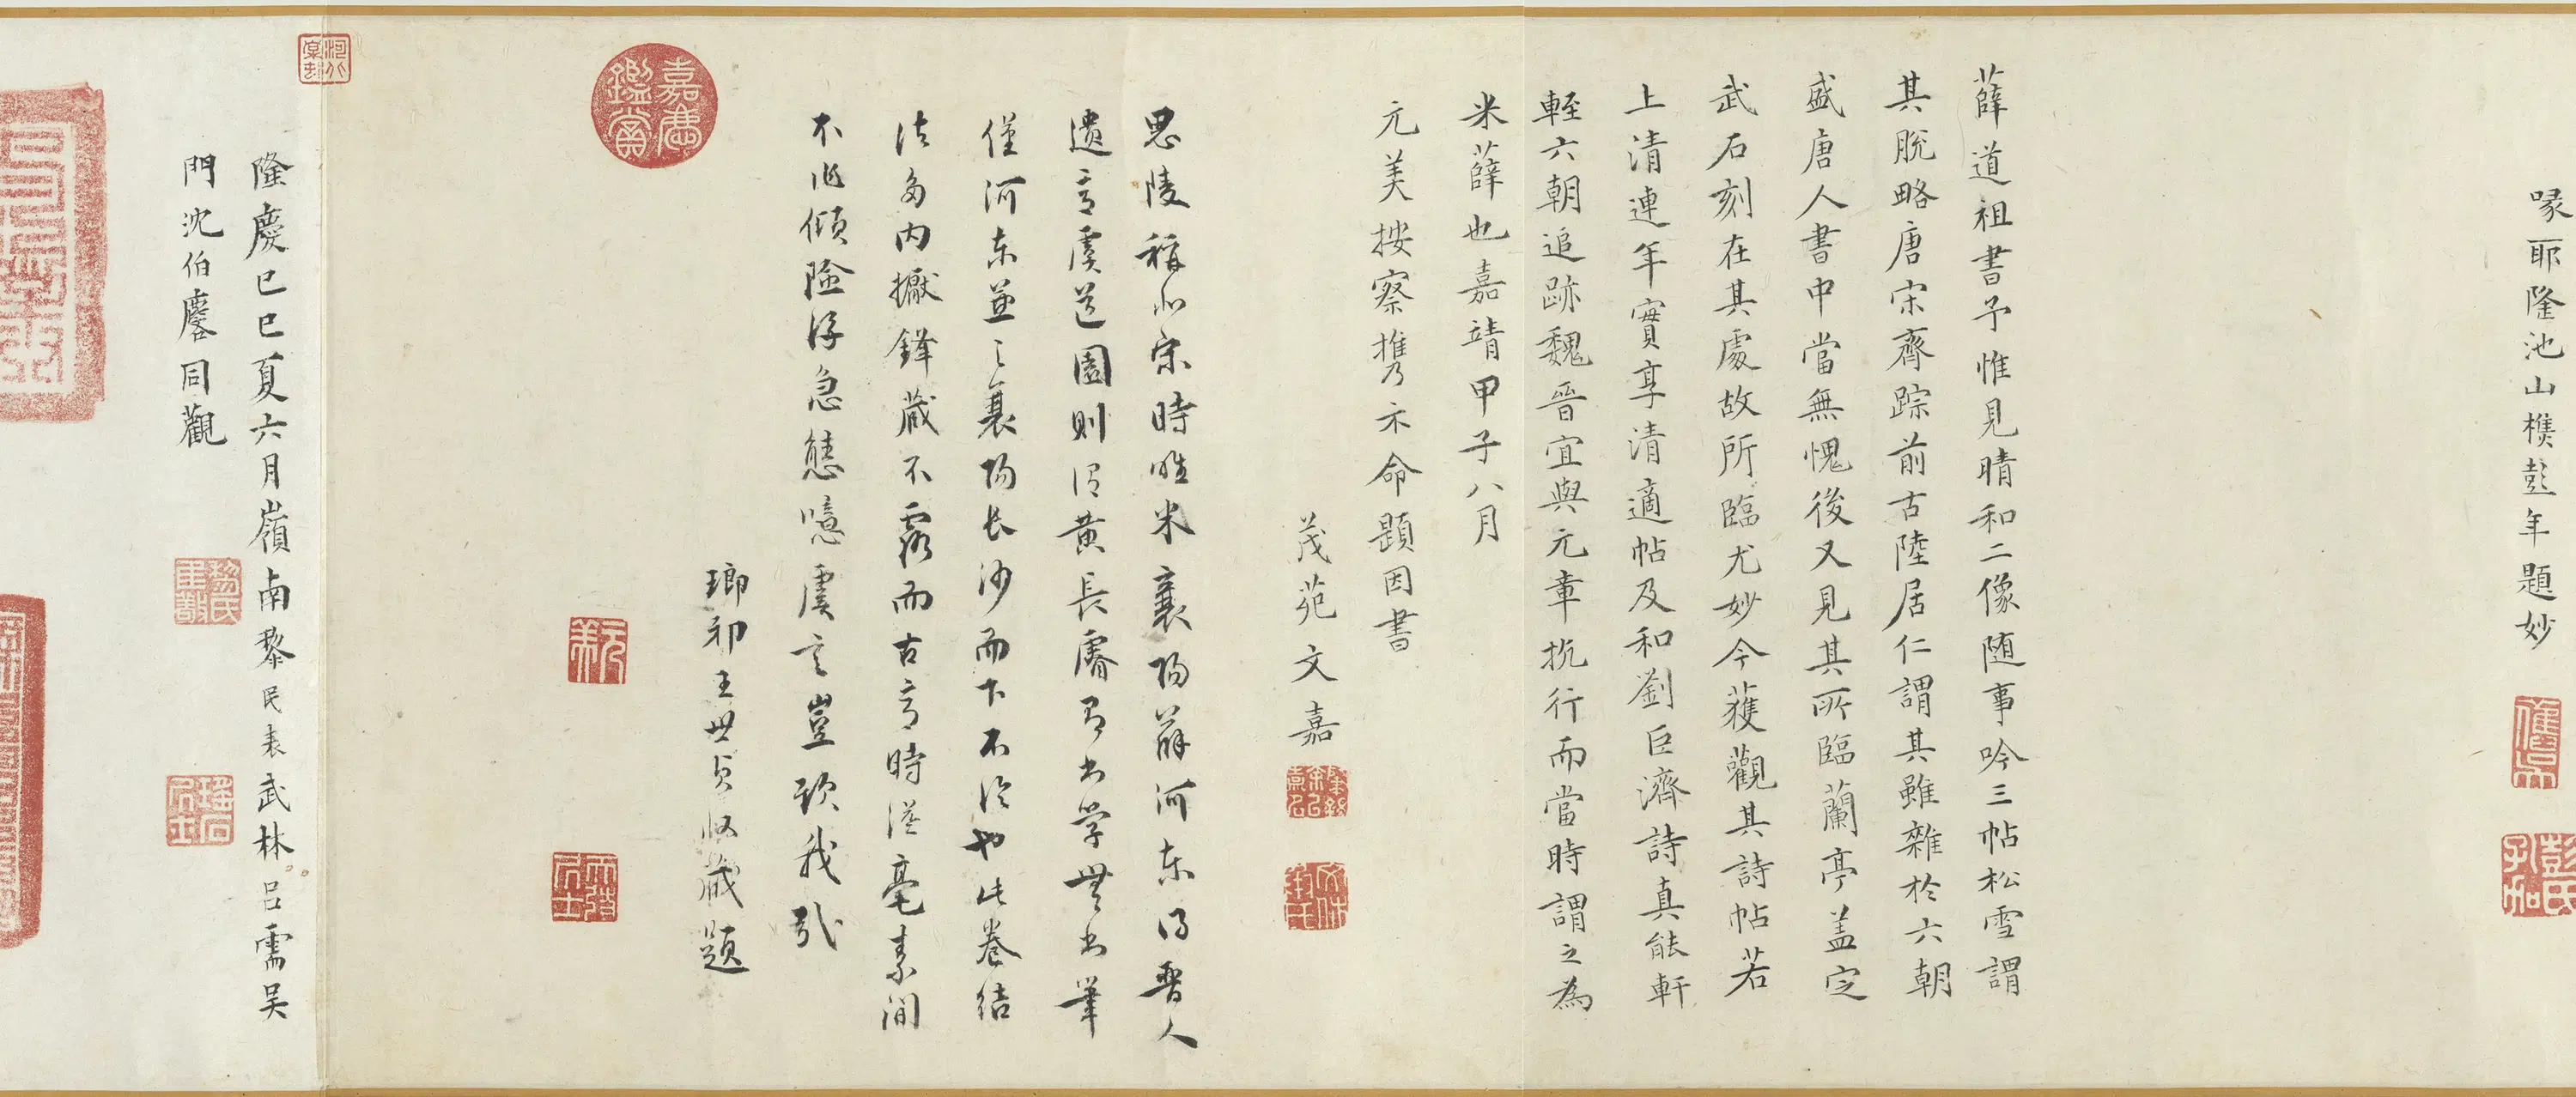 喙耶隆池山樵彭年題妙
薛道祖書予惟見晴和二像随事吟三帖松雪謂
其脫略唐宋齊踪前古陸居仁謂其雖雜於六朝
盛唐人書中當無愧後又見其所臨蘭亭盖定
武石刻在其處故所臨尤妙今獲觀其詩帖若
上清連年實享清適帖及和劉巨濟詩真能軒
輊六朝追跡魏晉宜與元章抗行而當時謂之為
米薛也嘉靖甲子八月
元美按察攜示命題因書
茂苑文嘉
思陵稱北宋時唯米襄陽薛河東得晉人
遺意虞道園則謂黃長睿有書學無書筆
僅河東並之襄陽長沙而下不論也此卷結
法多內擫鋒藏不露而古意時溢毫素間
不作傾險浮急態噫虞言豈欺我哉
瑯邪王世貞收藏題
嘉慶鑑賞
元美
隆慶己巳夏六月嶺南黎民表武林呂需吳
門沈伯麐同觀
黎氏
瑤石
彭氏孔加